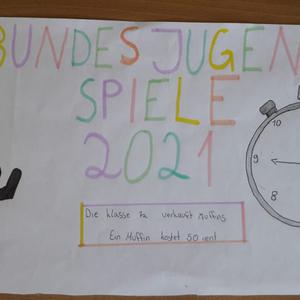 BUNDESJUGEN
SPIELE
2021
Die Klasse 7a verkauft Muffins
Ein Muffin kostet 50 cent
10
9
8